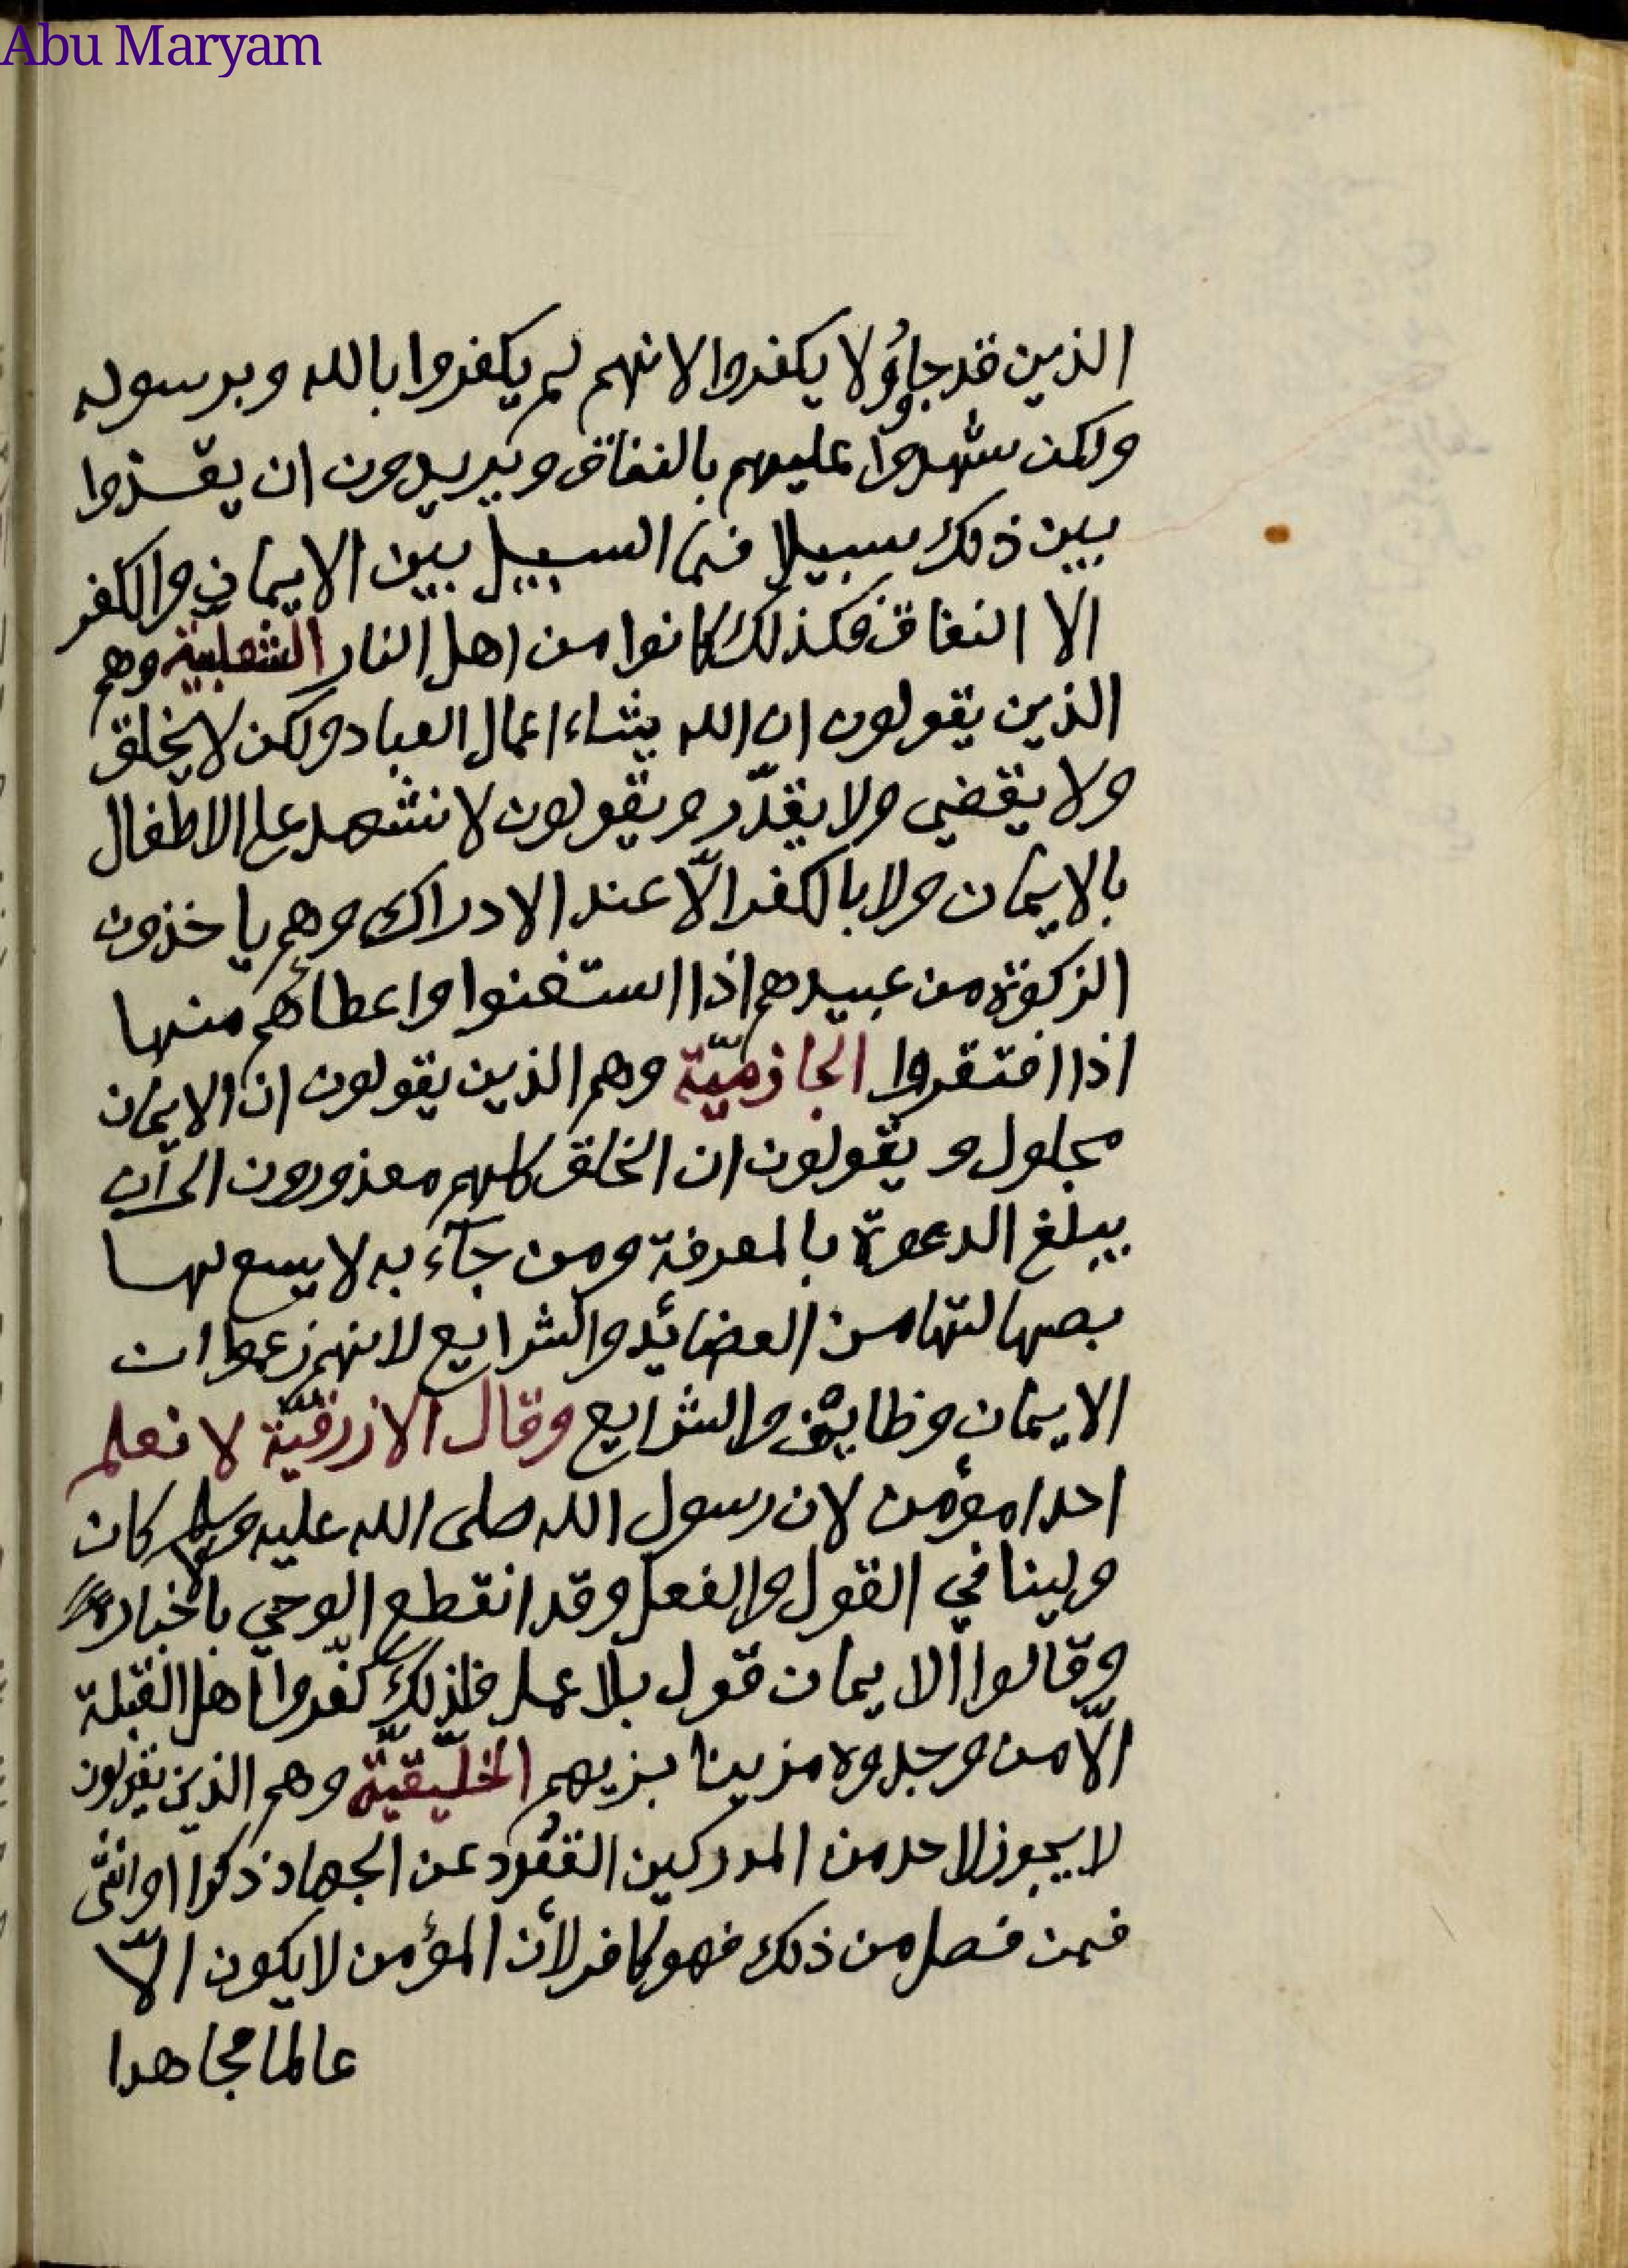 Abu Maryam
الذين قد جاؤُلا يكفروا لانهم لم يكفروا بالله وبرسوله
ولكن شهدوا عليهم بالنفاق ويريدون ان يقــذوا
بين ذلك سبيلا فما السبيل بين الايمان والكفر
الا النفاق فكذلك كانوا من اهل النار الثعلبيّة وهم
الذين يقولون ان الله يشاء اعمال العباد ولكن لا يخلق
ولا يقضي ولا يقدّر ويقولون لا نشهد على الاطفال
بالايمان ولا بالكفر الّا عند الادراك وهم ياخذون
الزكوة من عبيدهم اذا استغنوا واعطائهم منها
اذا افتقروا الجازميّة وهم الذين يقولون ان الايمان
مجلول ويقولون ان الخلق كلهم معذورون الى ان
يبلغ الدعوة بالمعرفة ومن جآء به لا يسع لها
بصهالتها من العضائد والشرايع لانهم زعموا ان
الايمان وظايف والشرايع وقال الازرقيّة لا نعلم
احدا مؤمن لان رسول الله صلى الله عليه وسلم كان
ولينا في القول والفعل وقد انقطع الوحي باخباره
وقالوا الايمان قول بلا عمل فلذلك كفّروا اهل القبلة
الّا من وجدوه مزينا بزيهم الخليّقيّة وهم الذين يقولون
لا يجوز لاحد من المدركين القعُود عن الجهاد ذكرا او انثى
فمن فصل من ذلك فهو كافر لأن المؤمن لا يكون الّا
عالما مجاهدا